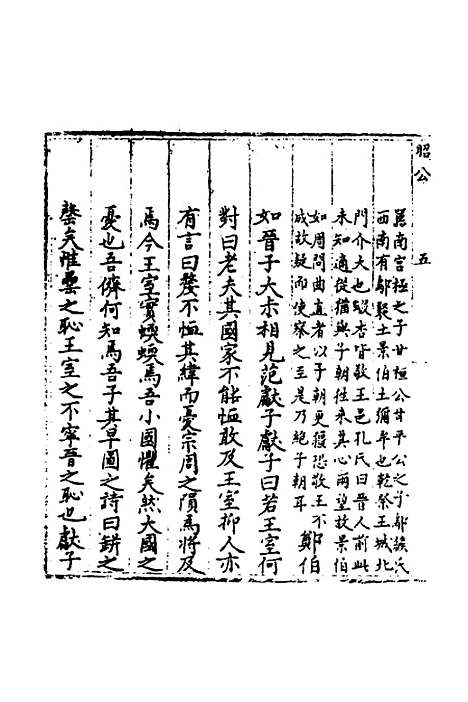 昭公 五
嚚南宮極之子甘桓公甘平公之子鄔緱氏
西南有鄔聚士景伯士彌牟也乾祭王城北
門介大也瑕杏皆敬王邑孔氏曰晉人前此
未知適從猶與子朝往来其心兩望故景伯
如周問曲直者以子朝更獲恐敬王不
成故疑而使察之至是乃絶子朝耳 鄭伯
如晉子大叔相見范獻子獻子曰若王室何
對曰老夫其國家不能恤敢及王室抑人亦
有言曰嫠不恤其緯而憂宗周之隕為將及
焉今王室實蠢蠢焉吾小國懼矣然大國之
憂也吾儕何知焉吾子其早圖之詩曰缾之
罄矣惟罍之恥王室之不寧晉之恥也獻子